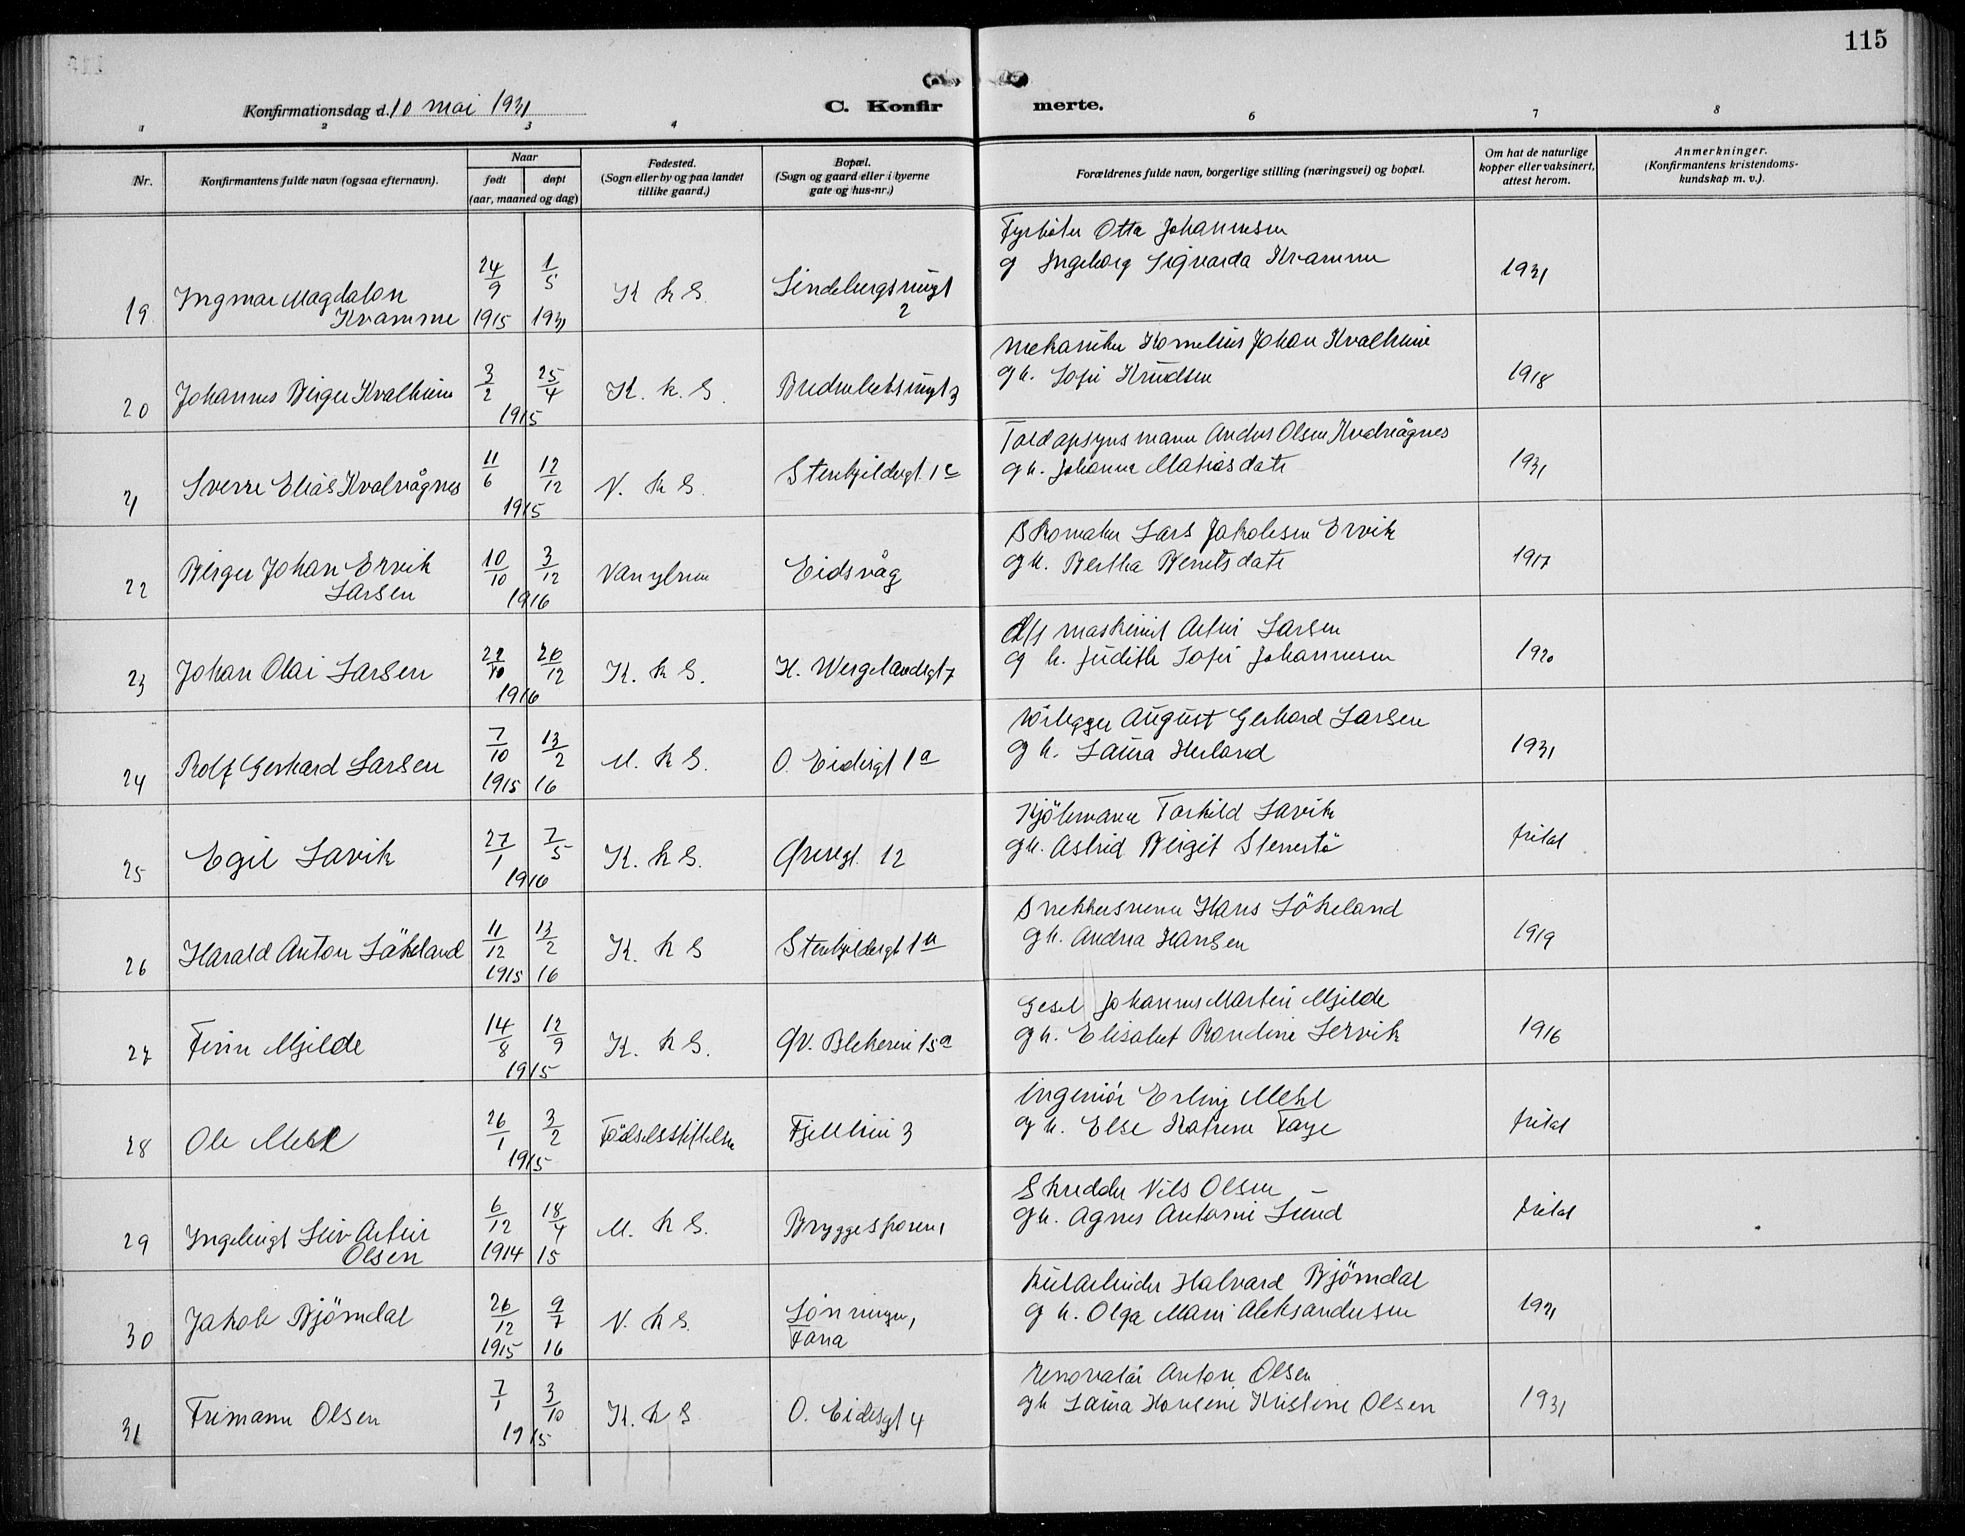 115
Konfirmationsdag d. 10 mai 1931
C. Konfir merte.
1 2 3 4 6 7 8
Nr.
Konfirmantens fulde navn (ogsaa efternavn).
Naar
født
døpt
(aar, maaned og dag)
Fødested.
(Sogn eller by og paa landet
tillike gaard.)
Bopæl.
(Sogn og gaard eller i byerne
gate og hus-nr.)
Forældrenes fulde navn, borgerlige stilling (næringsvei) og bopæl.
Om hat de naturlige
kopper eller vaksinert,
attest herom.
Anmerkninger.
(Konfirmantens kristendoms-
kundskap m. v.).
19 Ingmar Magdalon
Kvamme
24/9 1915
1/5 1931
K. k S.
2
Fyrbøter Otto Johannesen
og Ingeborg Sigvarda Kvamme
1931
20 Johannes Birger Kvalheim
3/2 25/4
1915
K. k. S.
Mekaniker Kornelius Johan Kvalheim
og h. Sofie Knudsen
1918
21 Sverre Elias Kvalvågnes
11/6 12/12
1915
N. k S.
Stenkjeldergt. 1c
Toldopsynsmann Anders Olsen Kvalvågnes
og h. Johanna Matiasdatr
1931
22 Birger Johan Ervik
Larsen
10/10 3/12
1916
Vanylven
Eidsvåg
Skomaker Lars Jakobsen Ervik
og h. Bertha Berntsdatr
1917
23 Johan Olai Larsen
22/10 26/12
1916
K. k S.
H. Wergelandsgt 7
maskinist Artur Larsen
og h. Judith Sofie Johannesen
1920
24 Rolf Gerhard Larsen
7/10 1915
13/2 16
M. k S.
O. Eidesgt 1a
Rørlegger August Gerhard Larsen
og h. Laura Herland
1931
25 Egil Lavik
27/1 7/5
1916
K. k S.
Øvregt. 12
Kjøbmann Torkild Lavik
og h. Astrid Birgit Stenestø
fritat
26 Harald Anton Løkeland
11/12 1915
13/2 16
K. k S
Stenkjeldergt 1a
Snekkersvenn Hans Løkeland
og h. Andrea Hansen
1919
27 Finn Mjelde
14/8 12/9
1915
K. k S.
Øv. Blekevei 15a
Gesel Johannes Martin Mjelde
og h. Elisabet Rondine Lervik
1916
28 Ole Mehl
26/1 3/2
1915
Fødselsstiftelsen
Fjellien 3
Ingeniør Erling Mehl
og h. Else Katrine Faye
fritat
29 Ingebrigt Liv Artur
Olsen
6/12 1914
18/4 15
M. k S.
Bryggesporen 1
Skredder Nils Olsen
og h. Agnes Antonie Lund
fritat
30 Jakob Bjørndal
26/12 1915
9/7 16
N. k S.
Søn
Fana
Halvard Bjørndal
og h. Olga Marie Aleksandersen
1931
31 Frimann Olsen
7/1 3/10
1915
K. k S
O. Eidesgt 4
Renovatør Anton Olsen
og h Laura Hansine Kristine Olsen
1931